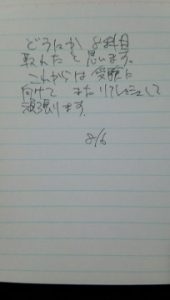 どうにか 8科目
取れたと思います。
これからは受験に
向けてまたリフレッシュして
頑張ります。
8/6